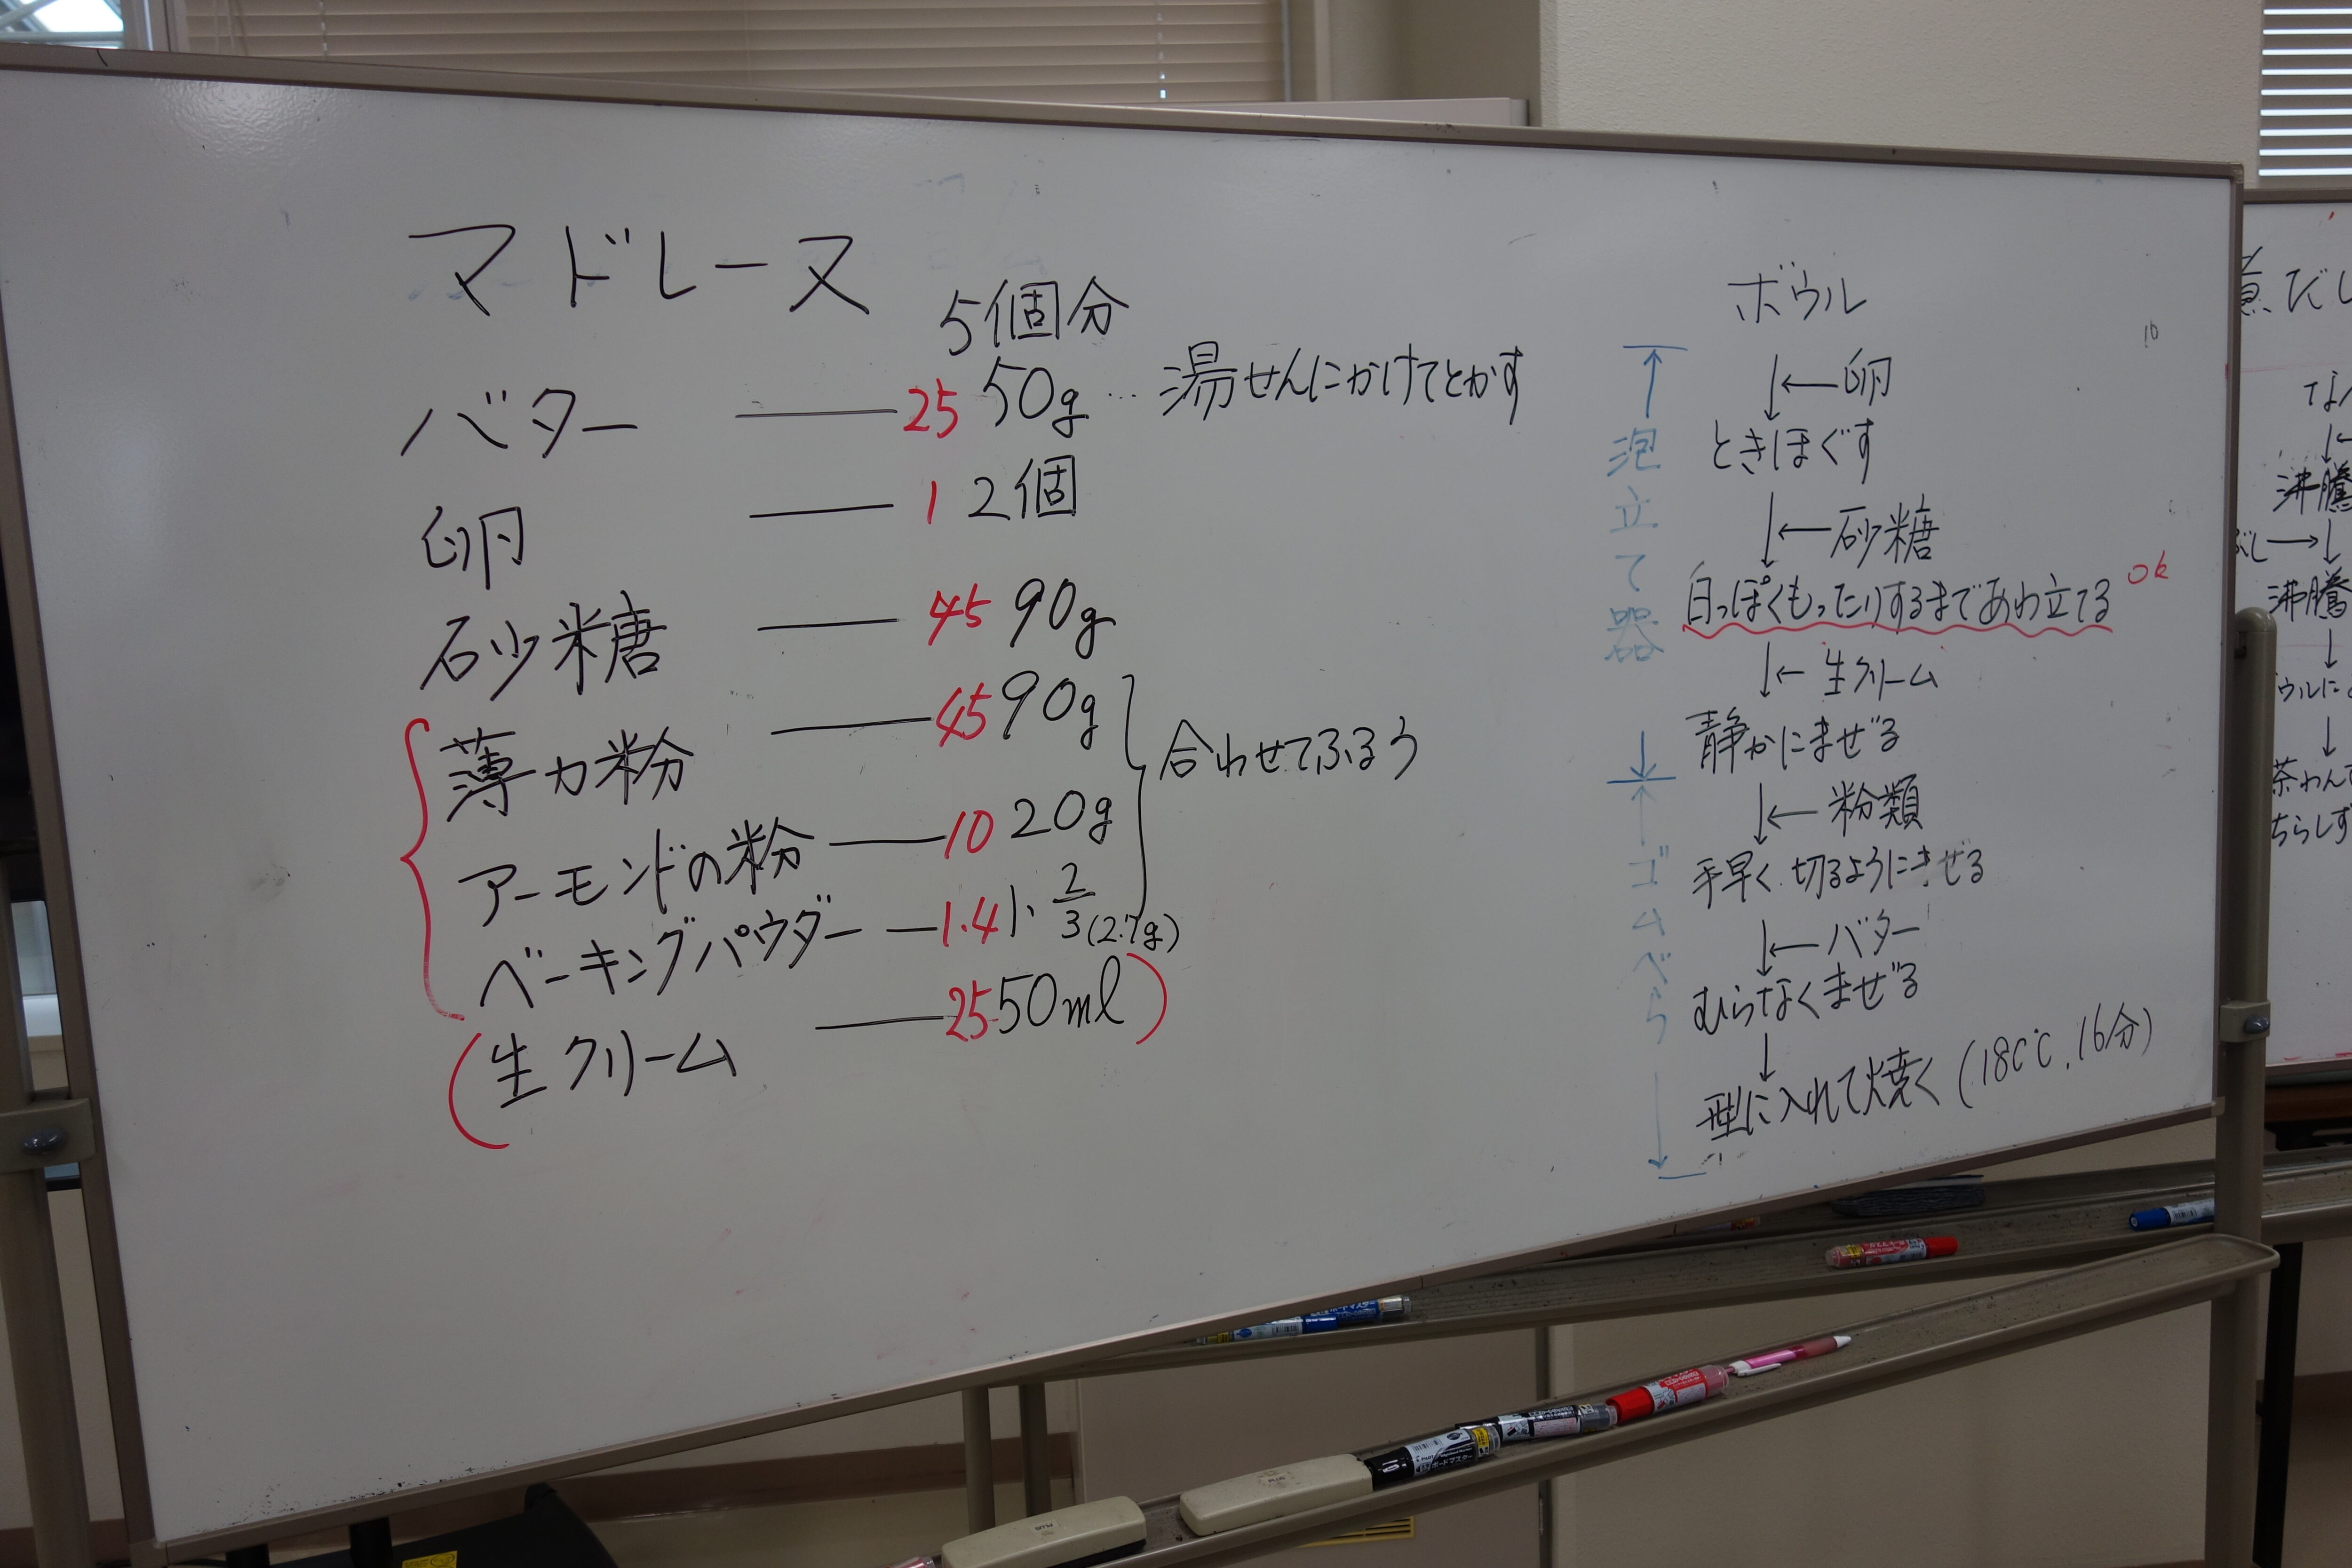 マドレーヌ
5個分
バター 25 50g … 湯せんにかけてとかす
卵 1 2個
砂糖 45 90g
薄力粉 45 90g
合わせてふるう
アーモンドの粉 10 20g
ベーキングパウダー 1.4 小 2/3 (2.7g)
(生クリーム 25 50ml)
ボウル
↓←卵
ときほぐす
↓←砂糖
白っぽくもったりするまであわ立てる ok
↓←生クリーム
静かにまぜる
↓←粉類
手早く切るようにまぜる
↓←バター
むらなくまぜる
↓
型に入れて焼く (180℃, 16分)
泡立て器
ゴムべら
沸騰
沸騰
茶わん
ちらしず